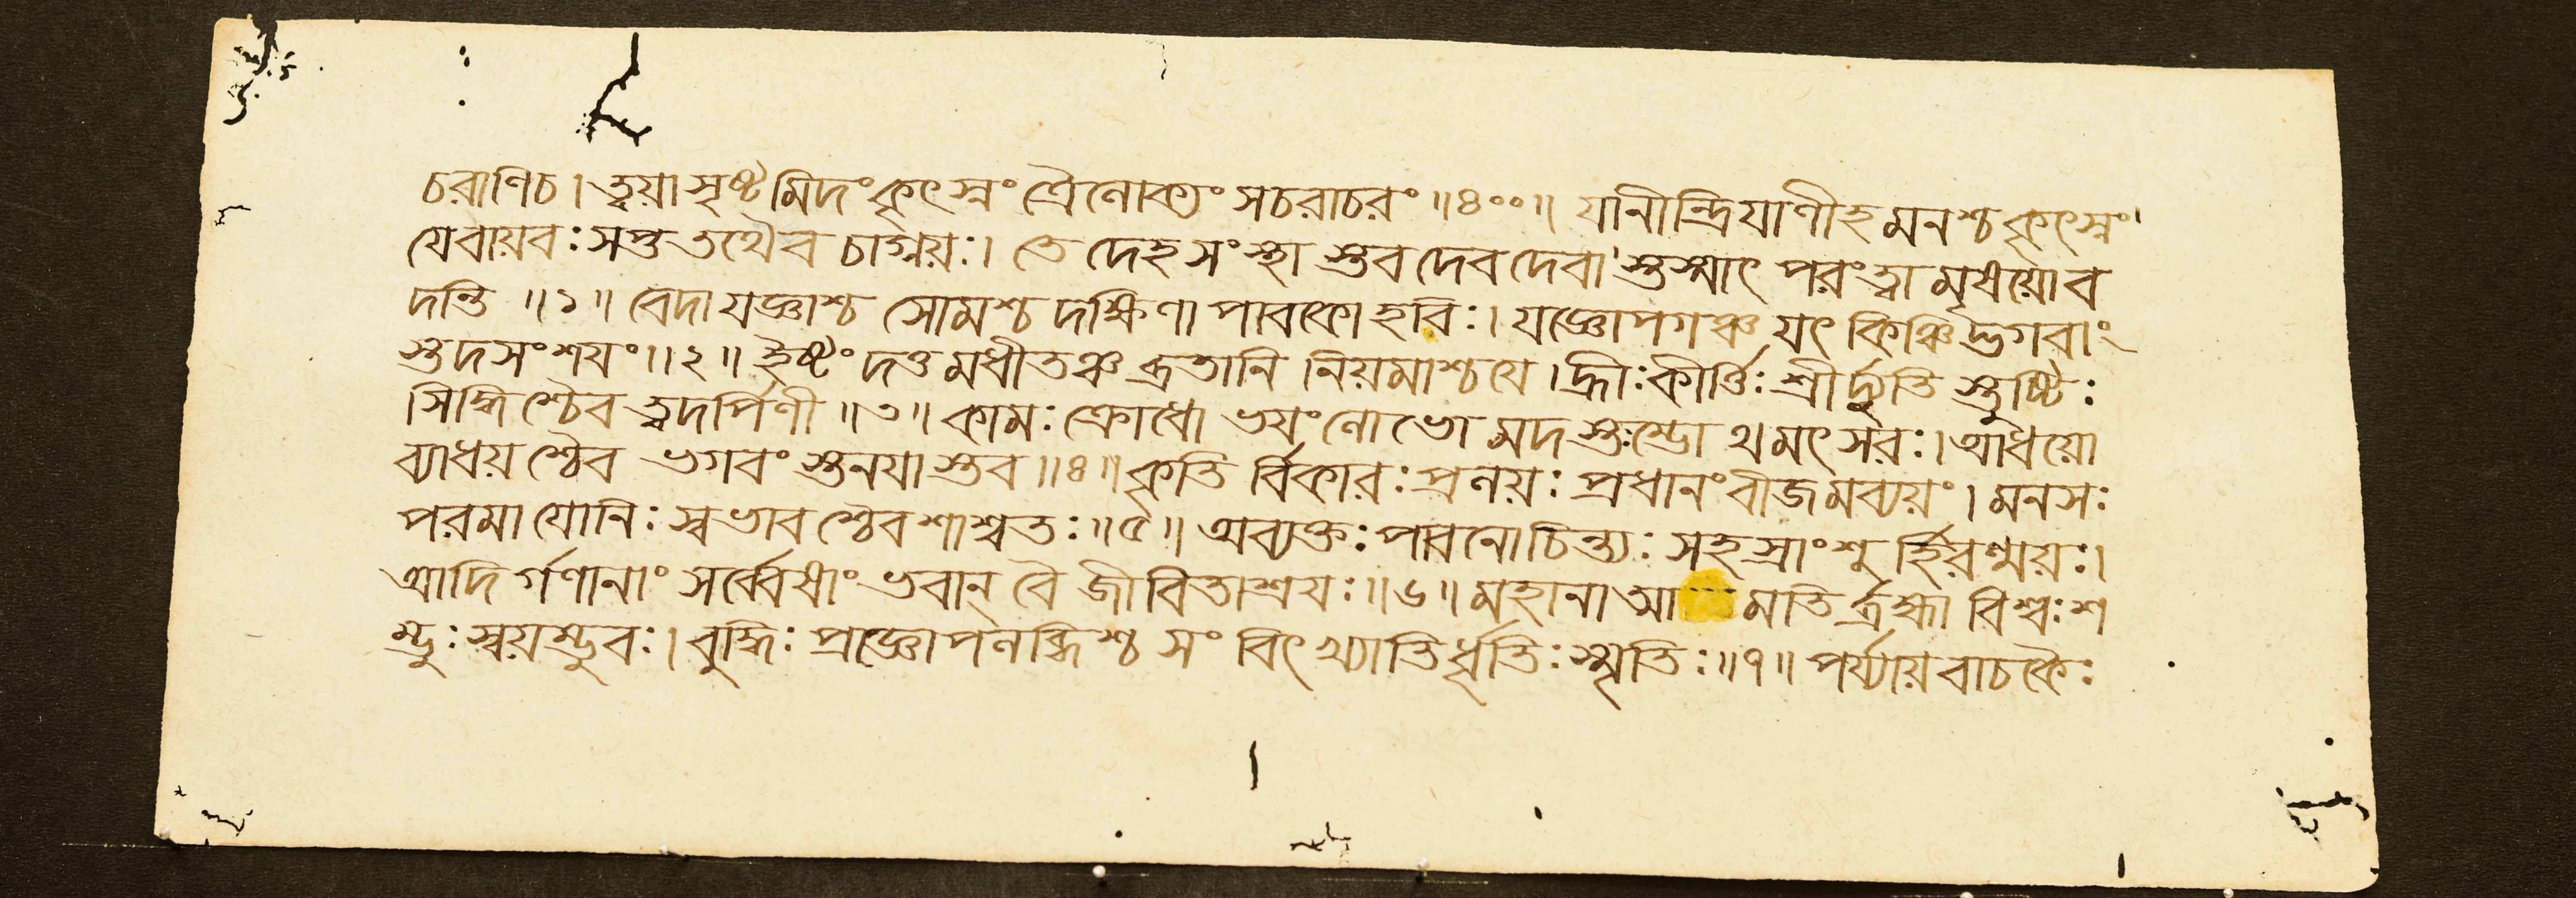 চরাণিচ। ত্বয়া সৃষ্টমিদং কৃৎস্নং ত্রৈলোক্যং সচরাচরং ॥৪০০॥ যানীন্দ্রিযাণীহ মনশ্চ কৃৎস্নং
যেবায়বঃ সপ্ত তথৈব চাগ্নয়ঃ। তে দেহসংস্থা স্তব দেবদেবা স্তস্মাৎ পরং ত্বা মৃষয়োব
দন্তি ॥১॥ বেদা যজ্ঞাশ্চ সোমশ্চ দক্ষিণা পাবকো হবিঃ। যজ্ঞোপগঞ্চ যৎ কিঞ্চি দ্ভগবাং
স্তদসংশযং ॥২॥ ইষ্টং দত্ত মধীতঞ্চ ব্রতানি নিয়মাশ্চ যে। হ্রীঃ কীর্ত্তিঃ শ্রী র্দ্যুতি স্তুষ্টিঃ
সিদ্ধি শ্চৈব ত্বদর্পিণী ॥৩॥ কামঃ ক্রোধো ভযং লোভো মদ স্তম্ভো থমৎসরঃ। আধয়ো
ব্যাধয় শ্চৈব ভগবং স্তনযা স্তব ॥৪॥ কৃতি র্বিকারঃ প্রলয়ঃ প্রধানং বীজমব্যয়ং। মনসঃ
পরমা যোনিঃ স্বভাব শ্চৈব শাশ্বতঃ ॥৫॥ অব্যক্তঃ পাবনোচিন্ত্যঃ সহস্রাংশু র্হিরণ্ময়ঃ।
আদি র্গণানাং সর্ব্বেষাং ভবান্ বৈ জীবিতাশ্রযঃ ॥৬॥ মহানাআ মতি র্ব্রহ্মা বিশ্বঃ শ
ম্ভুঃ স্বয়ম্ভুবঃ। বুদ্ধিঃ প্রাজ্ঞোপলব্ধিশ্চ সংবিৎ খ্যাতি র্ধৃতিঃ স্মৃতিঃ ॥৭॥ পর্য্যায়বাচকৈঃ